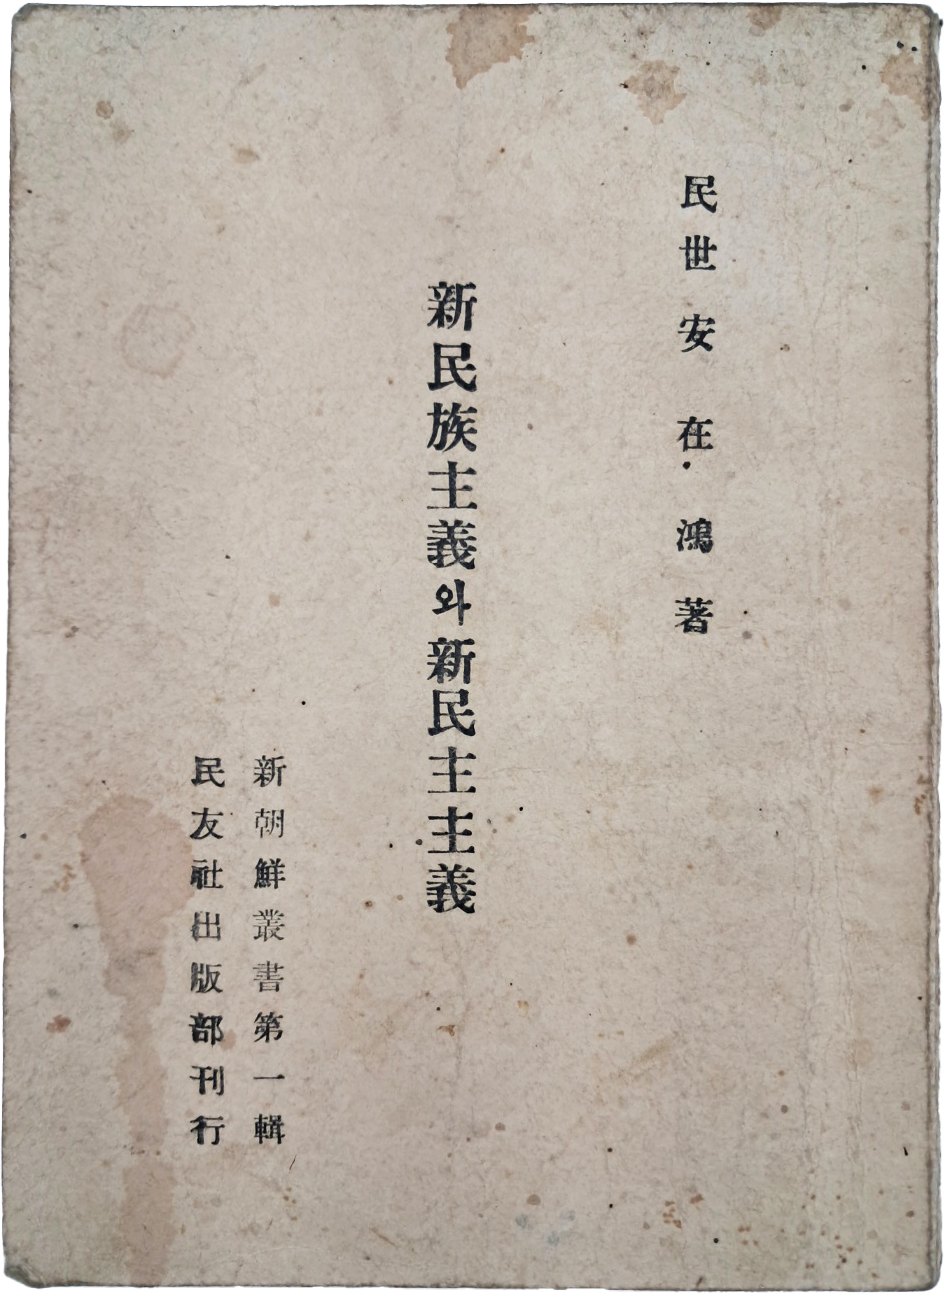 民世安在鴻著
新民族主義와新民主主義
新朝鮮叢書第一輯
民友社出版部刊行